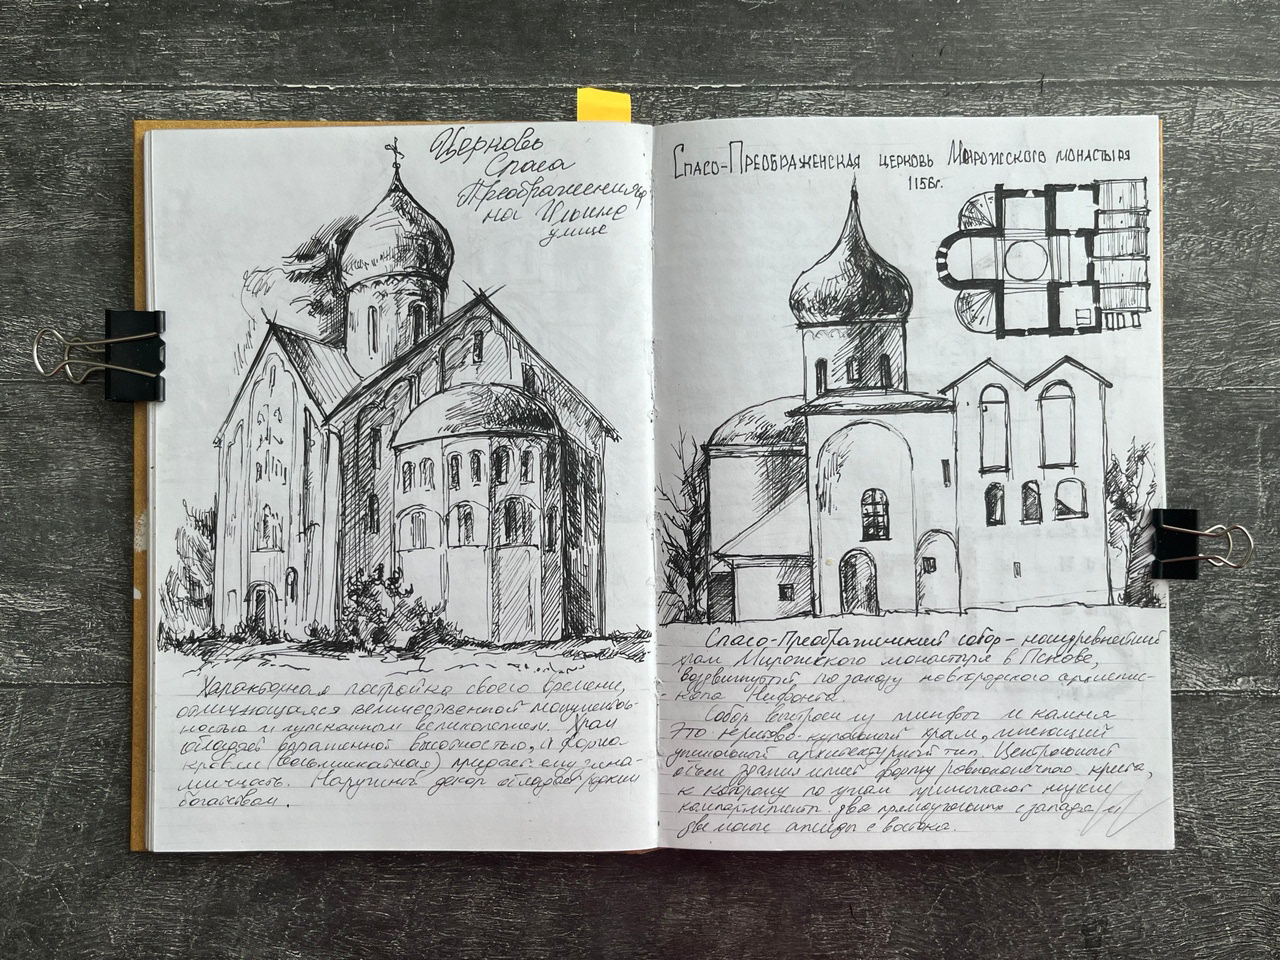 Церковь
Спаса
Преображения
на Ильине
улице
Характерная постройка своего времени,
отличающаяся величественной монументаль-
ностью и пышным великолепием. Храм
обладает выраженной высотностью, а форма
кровли (восьмискатная) придает ему дина-
мичность. Наружный декор обладает редким
богатством.
Спасо-Преображенская церковь Мирожского монастыря
1156г.
Спасо-Преображенский собор - наидревнейший
храм Мирожского монастыря в Пскове,
воздвигнутый по заказу новгородского архиепис-
копа Нифонта.
Собор выстроен из плинфы и камня
Это крестово-купольный храм, имеющий
уникальный архитектурный тип. Центральный
объем здания имеет форму равноконечного креста,
к которому по углам примыкают низкие
компартименты два прямоугольных с запада и
две малые апсиды с востока.